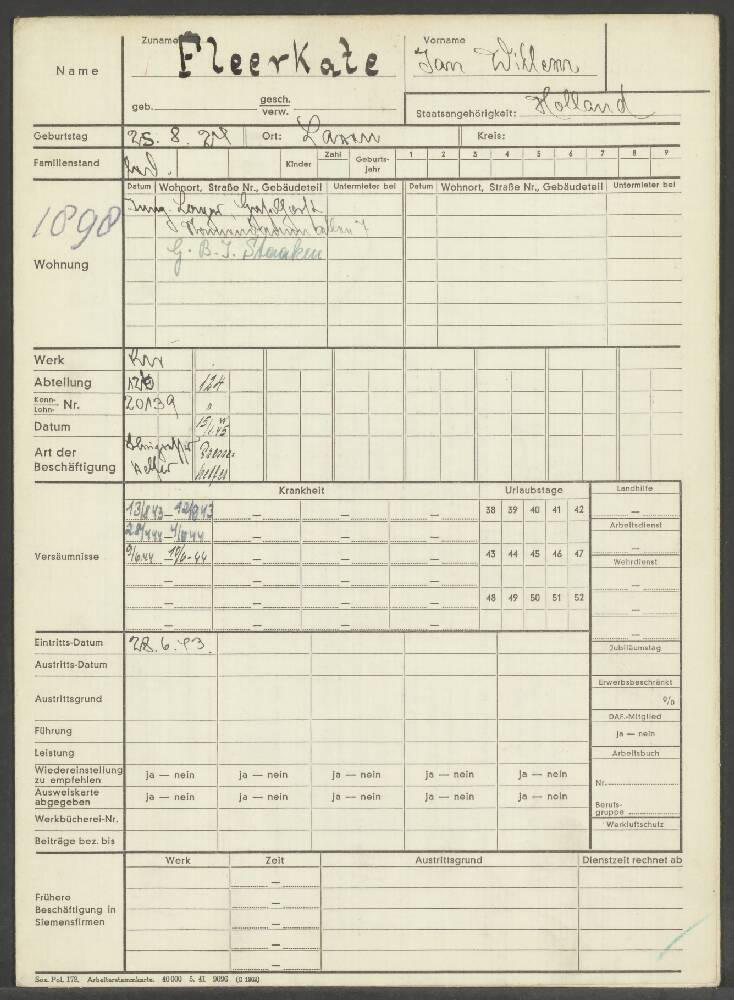 Name
Zuname FleerKate
Vorname Jan Willem
geb. gesch. verw.
Staatsangehörigkeit: Holland
Geburtstag 25. 8. 24 Ort: Laren Kreis:
Familienstand led. Kinder Zahl Geburtsjahr 1 2 3 4 5 6 7 8 9
Datum Wohnort, Straße Nr., Gebäudeteil Untermieter bei Datum Wohnort, Straße Nr., Gebäudeteil Untermieter bei
1898
G. B. J. Staaken
Wohnung
Werk
Abteilung 124
Kenn- Lohn- Nr. 20139 "
Datum
Art der Beschäftigung Helfer helfer
Krankheit Urlaubstage Landhilfe
38 39 40 41 42
Arbeitsdienst
Versäumnisse
43 44 45 46 47
Wehrdienst
48 49 50 51 52
Eintritts-Datum 28. 6. 43
Jubiläumstag
Austritts-Datum
Erwerbsbeschränkt
%
Austrittsgrund
DAF.-Mitglied
Führung
ja — nein
Leistung
Arbeitsbuch
Wiedereinstellung zu empfehlen ja — nein ja — nein ja — nein ja — nein ja — nein
Nr.
Ausweiskarte abgegeben ja — nein ja — nein ja — nein ja — nein ja — nein
Berufsgruppe
Werkbücherei-Nr.
Werkluftschutz
Beiträge bez. bis
Werk Zeit Austrittsgrund Dienstzeit rechnet ab
Frühere
Beschäftigung in
Siemensfirmen
Soz. Pol. 178. Arbeiterstammkarte. 40000 5. 41. 9096 (C 1962)